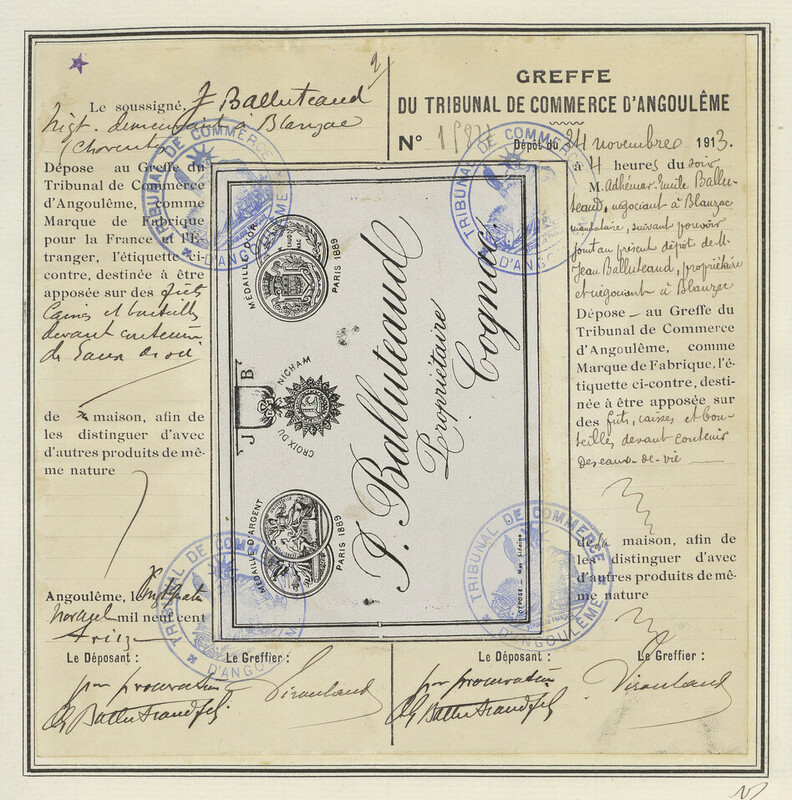 2/
Le soussigné, J Balluteaud
Négt. demeurant à Blanzac
(Charente)
Dépose au Greffe du
Tribunal de Commerce
d'Angoulême, comme
Marque de Fabrique
pour la France et l'É-
tranger, l'étiquette ci-
contre, destinée à être
apposée sur des fûts
Caisses et bouteilles
devant contenir
de
de maison, afin de
les distinguer d'avec
d'autres produits de mê-
me nature
Angoulême, le vingt quatre
mil neuf cent
treize
Le Déposant :
Le Greffier :
par procuration
GREFFE
DU TRIBUNAL DE COMMERCE D'ANGOULÊME
N°
Dépôt du 24 novembre 1913.
à 4 heures du soir
M. Adhémar Emile Ballu-
teaud, négociant à Blanzac
mandataire, suivant pouvoir
joint au présent dépôt de M.
Jean Balluteaud, propriétaire
et négociant à Blanzac
Dépose au Greffe du
Tribunal de Commerce
d'Angoulême, comme
Marque de Fabrique, l'é-
tiquette ci-contre, desti-
née à être apposée sur
des fûts, caisses et bou-
teilles devant contenir
des eaux-de-vie
de la maison, afin de
les distinguer d'avec
d'autres produits de mê-
me nature
Le Déposant :
Le Greffier :
par procuration
MÉDAILLE D'OR
PARIS 1889
J B
CROIX DU NICHAM
MÉDAILLE D'ARGENT
PARIS 1889
J. Balluteaud
Propriétaire
Cognac.
TRIBUNAL DE COMMERCE
D'ANGOULÊME
TRIBUNAL DE COMMERCE
D'ANGOULÊME
TRIBUNAL DE COMMERCE
D'ANGOULÊME
TRIBUNAL DE COMMERCE
D'ANGOULÊME